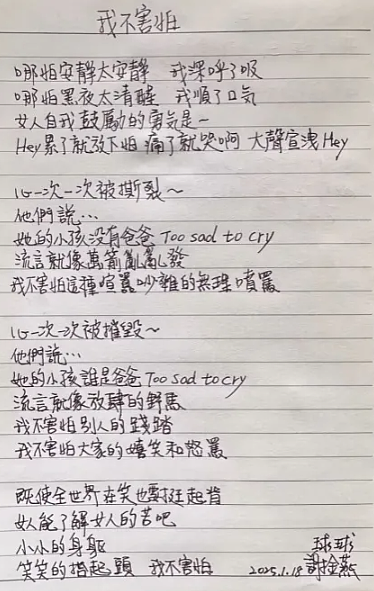 我不害怕
哪怕安靜太安靜 我深呼了吸
哪怕黑夜太清醒 我順了口気
女人自我鼓勵的勇気是~
Hey累了就放下怕 痛了就哭啊 大聲宣洩Hey
心一次一次被撕裂~
他們說...
她的小孩沒有爸爸 Too sad to cry
流言就像萬箭亂亂發
我不害怕這種喧囂吵雜的無理噴罵
心一次一次被摧毀~
他們說...
她的小孩誰是爸爸 Too sad to cry
流言就像放肆的野馬
我不害怕別人的踐踏
我不害怕大家的嬉笑和怒罵
既使全世界在笑也要挺起背
女人能了解女人的苦吧
小小的身軀
笑笑的抬起頭 我不害怕
球球
2025.1.18 謝金燕